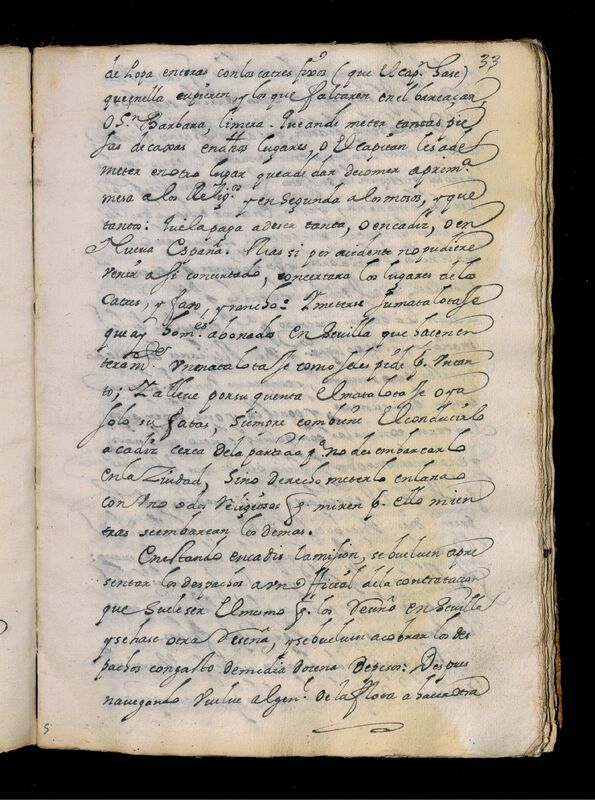 33
de Ropa en cuias con los catres fixos (que el cap.n hase)
que en ella cupieren, y los que faltaren en el barcaçar,
O S.n Barbara, limera. Iueando meter tantas pie
sas de caxas en dhos lugares, o El capitan les a de
meter en otro lugar que a de dar de comer a prim.a
mesa a los Relig.os y en segunda a los mosos, y que
tanto: I si la paga a de ser tanta, o en cadiz, o en
Nueua España. Mas si por acidente no pudiere
venir a si concertado, concertara los lugares de los
Catres, y faro, y rancho: I meterse su matalotase
que ay hom.es abonados en Seuilla que hacen en
teram.te Vn matalotase como se les pide p.r Vn tan
to; I a lleue por su quenta El matalotase o ya
solo su fatas, siempre combiene El conducirlo
a cadiz cerca de la partida p.a no desembarcarlo
en la Ziudad, Sino derecho meterlo en la nao
con Vno o dos Religiosos q. miren p.r ello mien
tras se embarcan los demas.
En estando en cadis la mision, se bueluen a pre
sentar los despachos a vn Official de la contratacion
que suele ser El mismo q. los Vesuño en Seuilla
y se hase otra reseña, y se bueluen a cobrar los des
pachos con gasto de media docena de pesos: Despues
nauegando Vuelue al gen.l de la flota a hacer otra
5